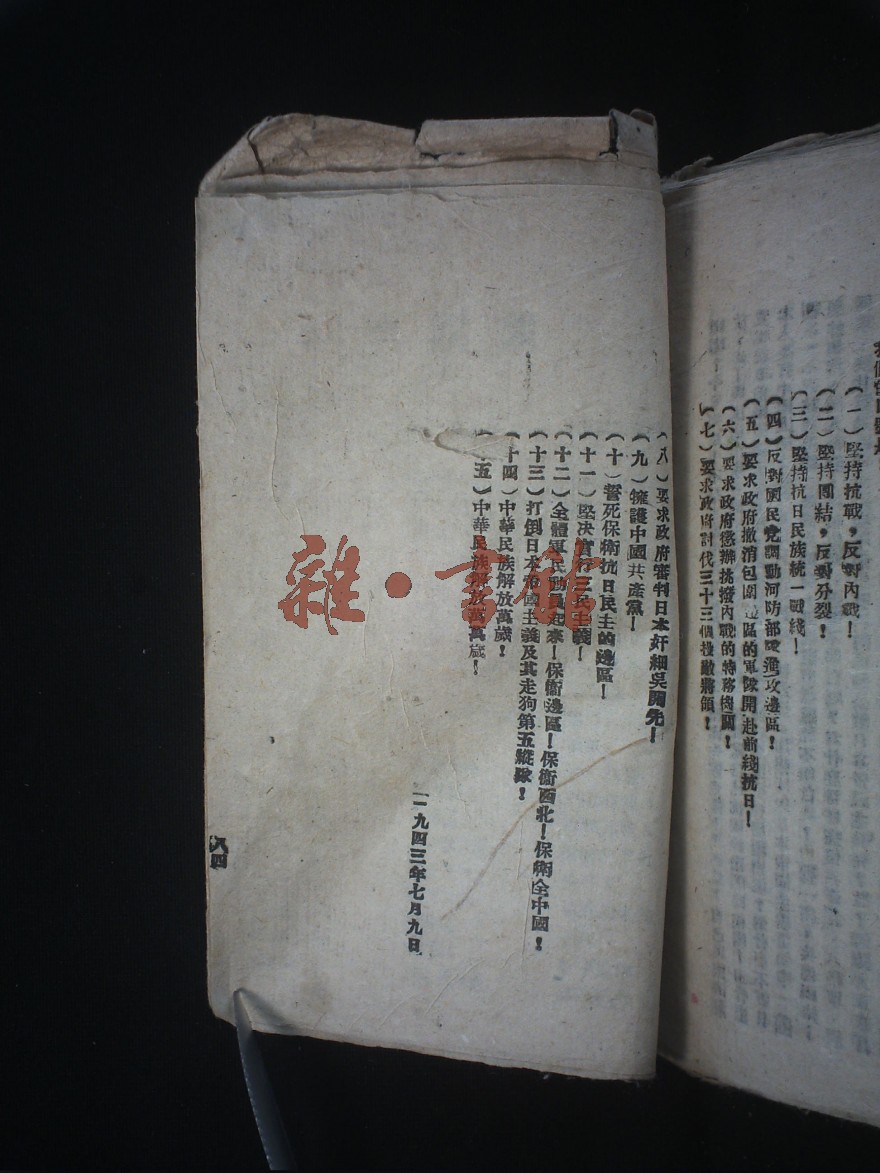 (一)堅持抗戰,反對內戰!
(二)堅持團結,反對分裂!
(三)堅持抗日民族統一戰綫!
(四)反對國民党調動河防部隊進攻邊區!
(五)要求政府撤消包圍邊區的軍隊開赴前綫抗日!
(六)要求政府懲辦挑撥內戰的特務機關!
(七)要求政府討伐三十三個投敵將領!
(八)要求政府審判日本奸細吳開先!
(九)擁護中國共產黨!
(十)誓死保衛抗日民主的邊區!
(十一)堅决實行三民主義!
(十二)全體軍民動員起來!保衛邊區!保衛西北!保衛全中國!
(十三)打倒日本帝國主義及其走狗第五縱隊!
(十四)中華民族解放萬歲!
(十五)中華民族解放萬萬歲!
一九四三年七月九日
八四
雜·書館